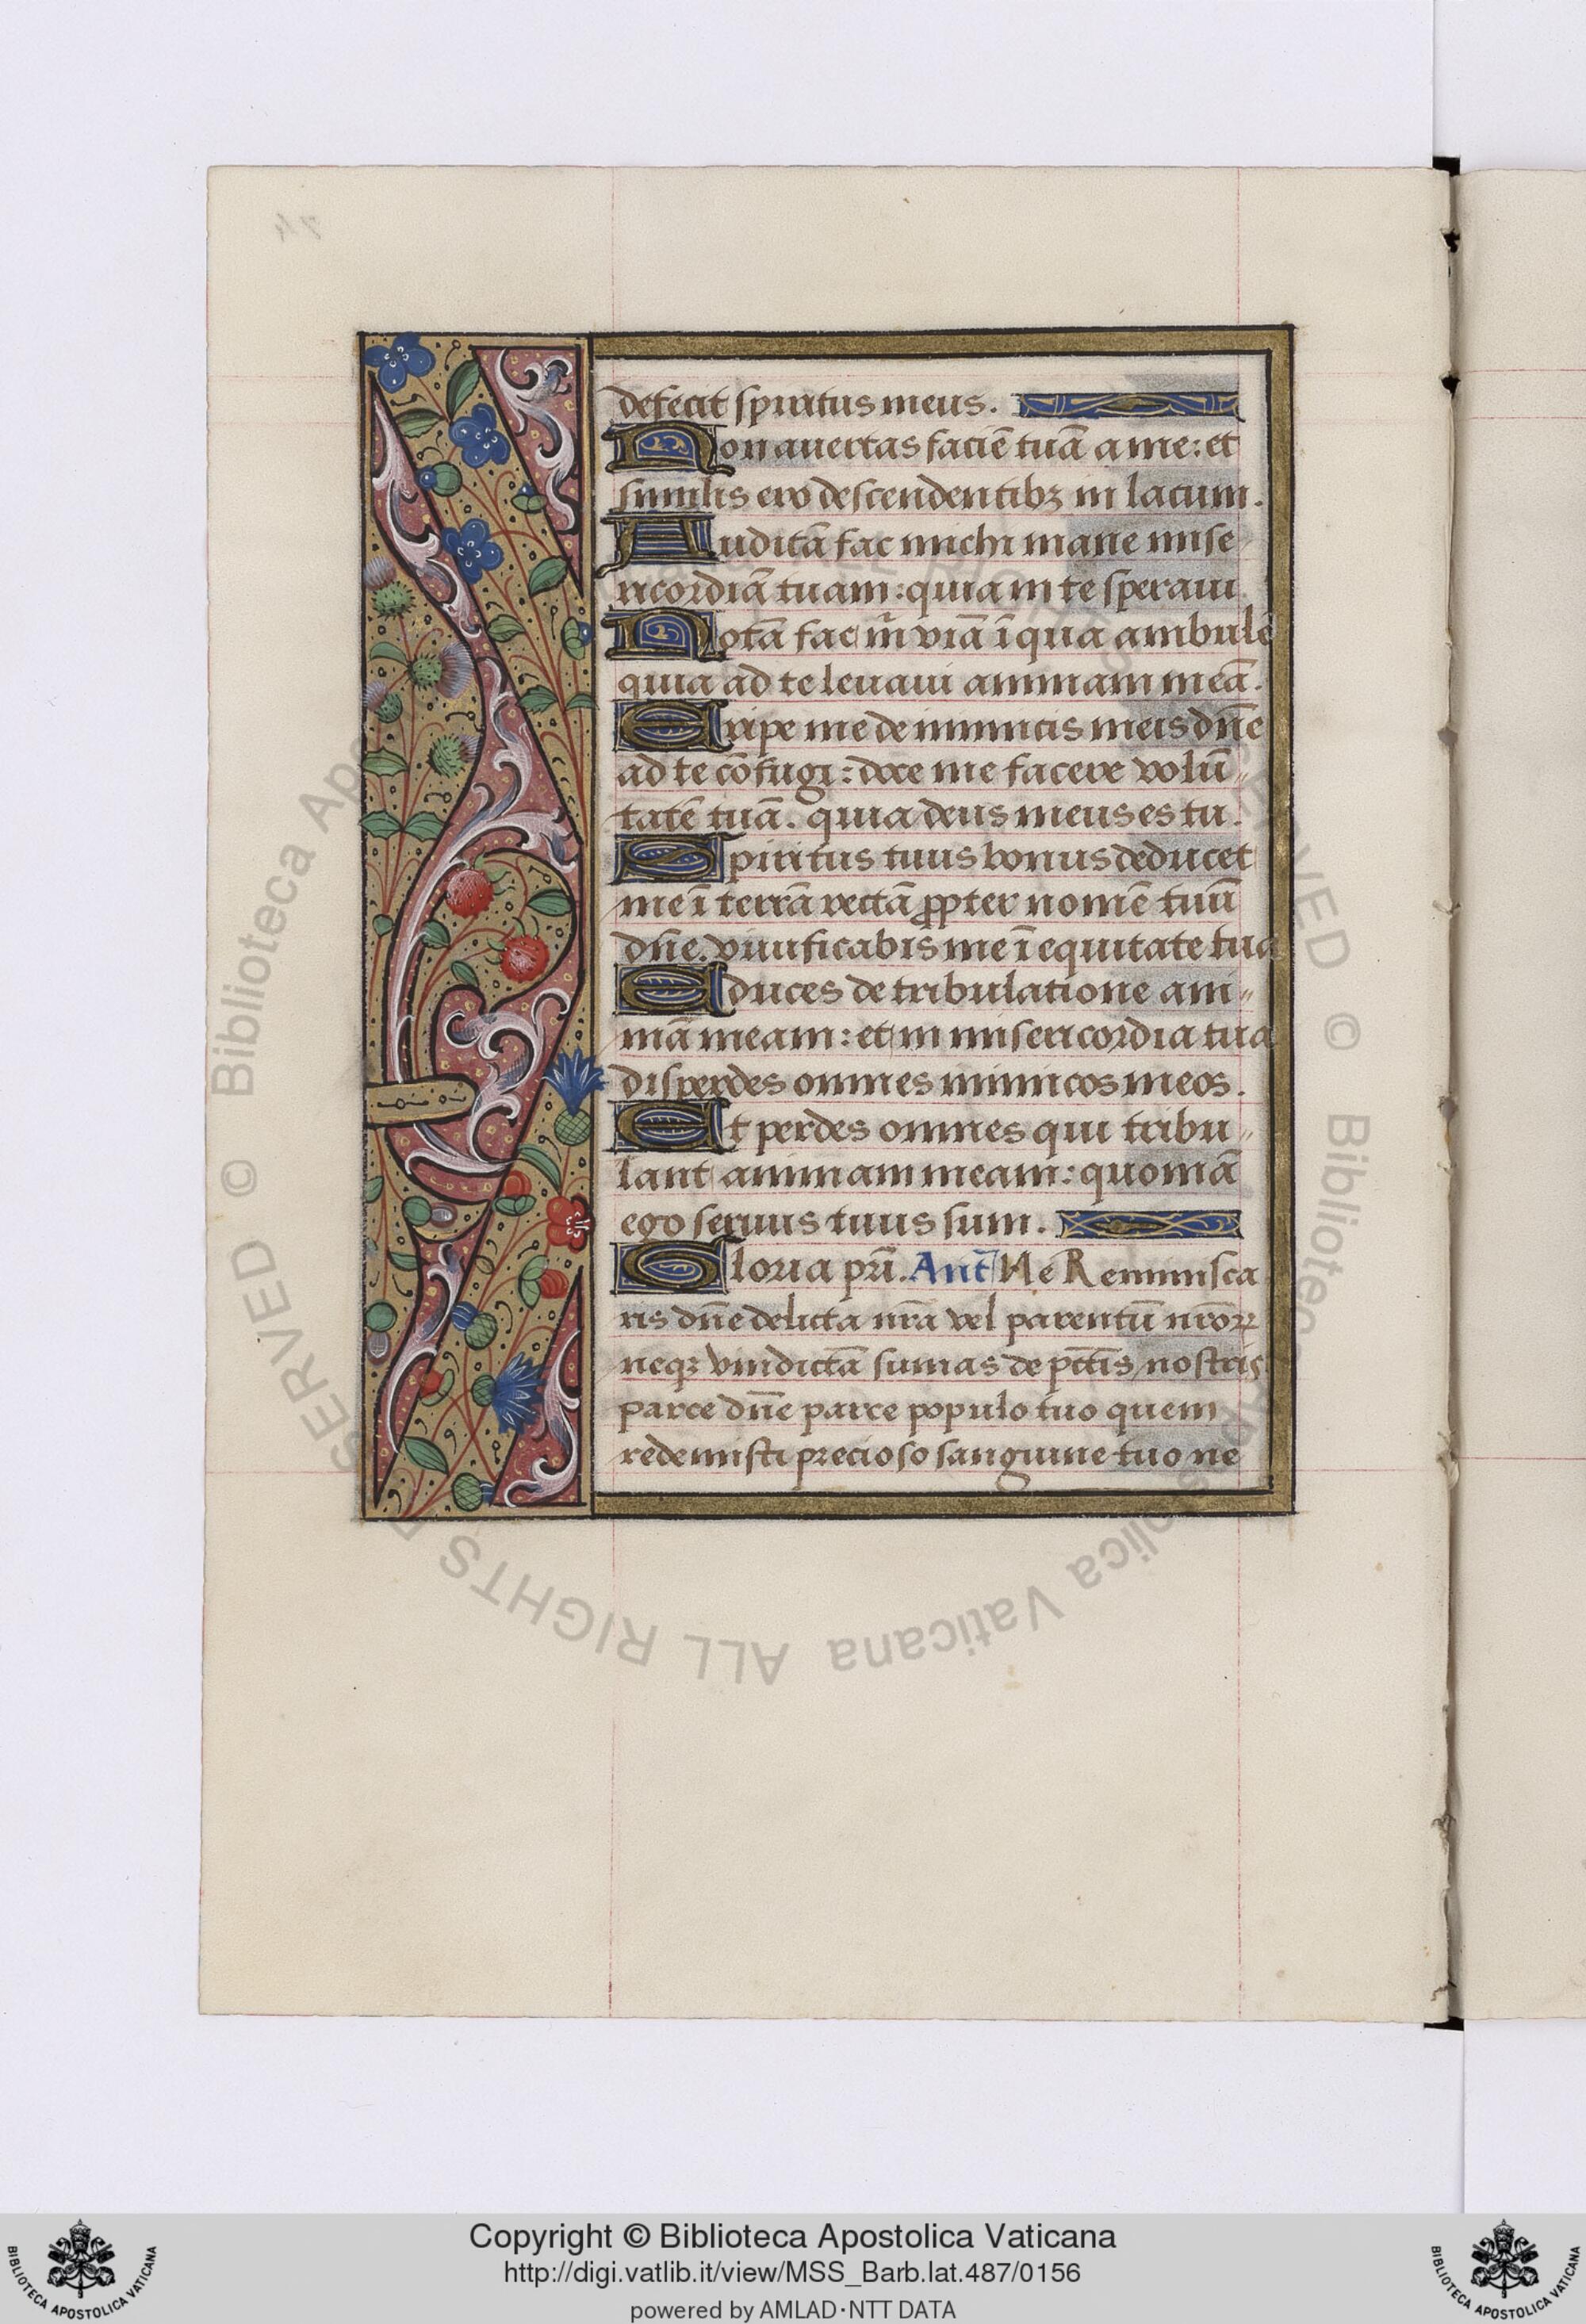 defecit spiritus meus.
Non auertas faciē tuā a me: et
similis ero descendentibꝫ in lacum.
Auditā fac michi mane mise
ricordiā tuam: quia in te speraui
Notā fac m̄ viā ī qua ambulē
quia ad te leuaui animam meā.
Eripe me de inimicis meis dn̄e
ad te cōfugi: doce me facere volū„
tatē tuā. quia deus meus es tu.
Spiritus tuus bonus deducet
me ī terrā rectā ꝓpter nomē tuū
dn̄e. viuificabis me ī equitate tua
Educes de tribulatione ani„
mā meam: et in misericordia tua
disperdes omnes inimicos meos.
Et perdes omnes qui tribu„
lant animam meam: quoniā
ego seruus tuus sum.
Gloria pr̄i. Ant̄ Ne Reminisca
ris dn̄e delicta nr̄a vel parentū nr̄oꝝ
neqꝫ vindictā sumas de pctīs nostris
parce dn̄e parce populo tuo quem
redemisti precioso sanguine tuo ne
© Biblioteca Apostolica Vaticana ALL RIGHTS RESERVED
Copyright © Biblioteca Apostolica Vaticana
http://digi.vatlib.it/view/MSS_Barb.lat.487/0156
powered by AMLAD·NTT DATA
BIBLIOTECA APOSTOLICA VATICANA
BIBLIOTECA APOSTOLICA VATICANA